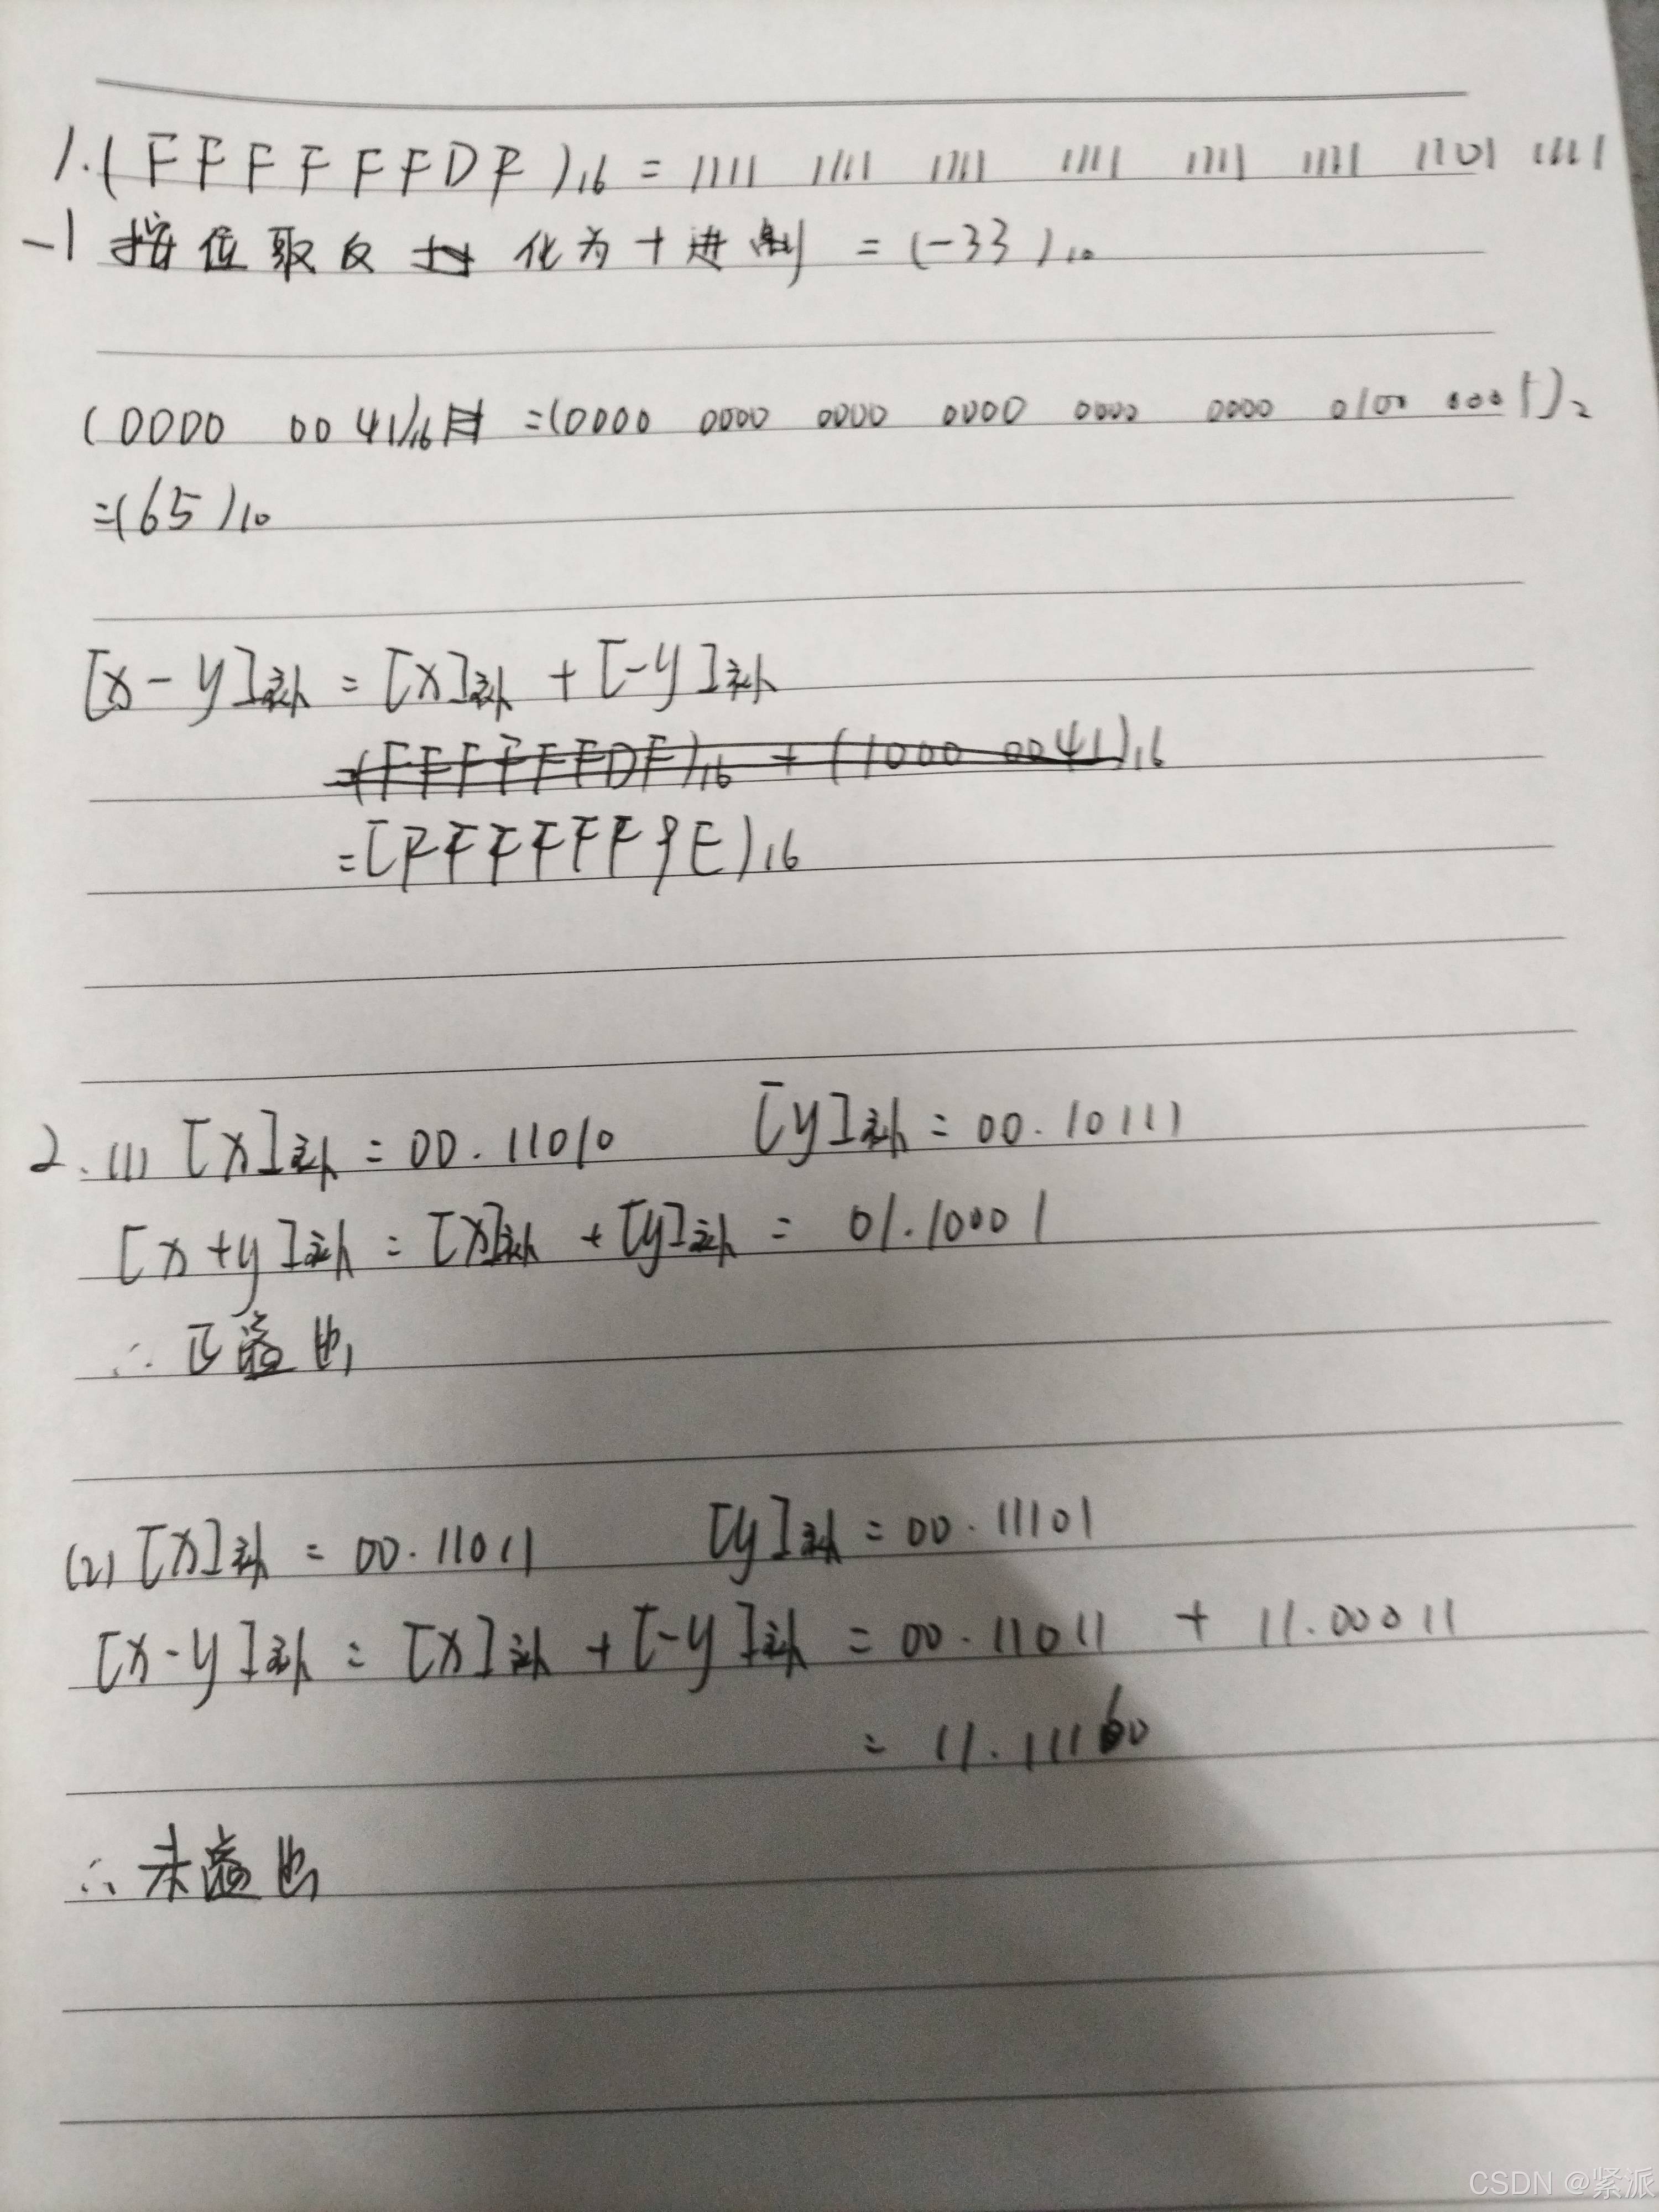 1.(FFFFFFDF)₁₆ = 1111 1111 1111 1111 1111 1111 1101 1111
-1 按位取反 化为十进制 = (-33)₁₀
(0000 0041)₁₆ =(0000 0000 0000 0000 0000 0000 0100 0001)₂
=(65)₁₀
[x-y]补 = [x]补 + [-y]补
=(FFFFFFDF)₁₆ + (1000 0041)₁₆
=[FFFFFF9E)₁₆
2.(1) [x]补 = 00.11010 [y]补 = 00.10111
[x+y]补 = [x]补 + [y]补 = 01.10001
∴ 正溢出
(2) [x]补 = 00.11011 [y]补 = 00.11101
[x-y]补 = [x]补 + [-y]补 = 00.11011 + 11.00011
= 11.11110
∴ 未溢出
CSDN @紧派